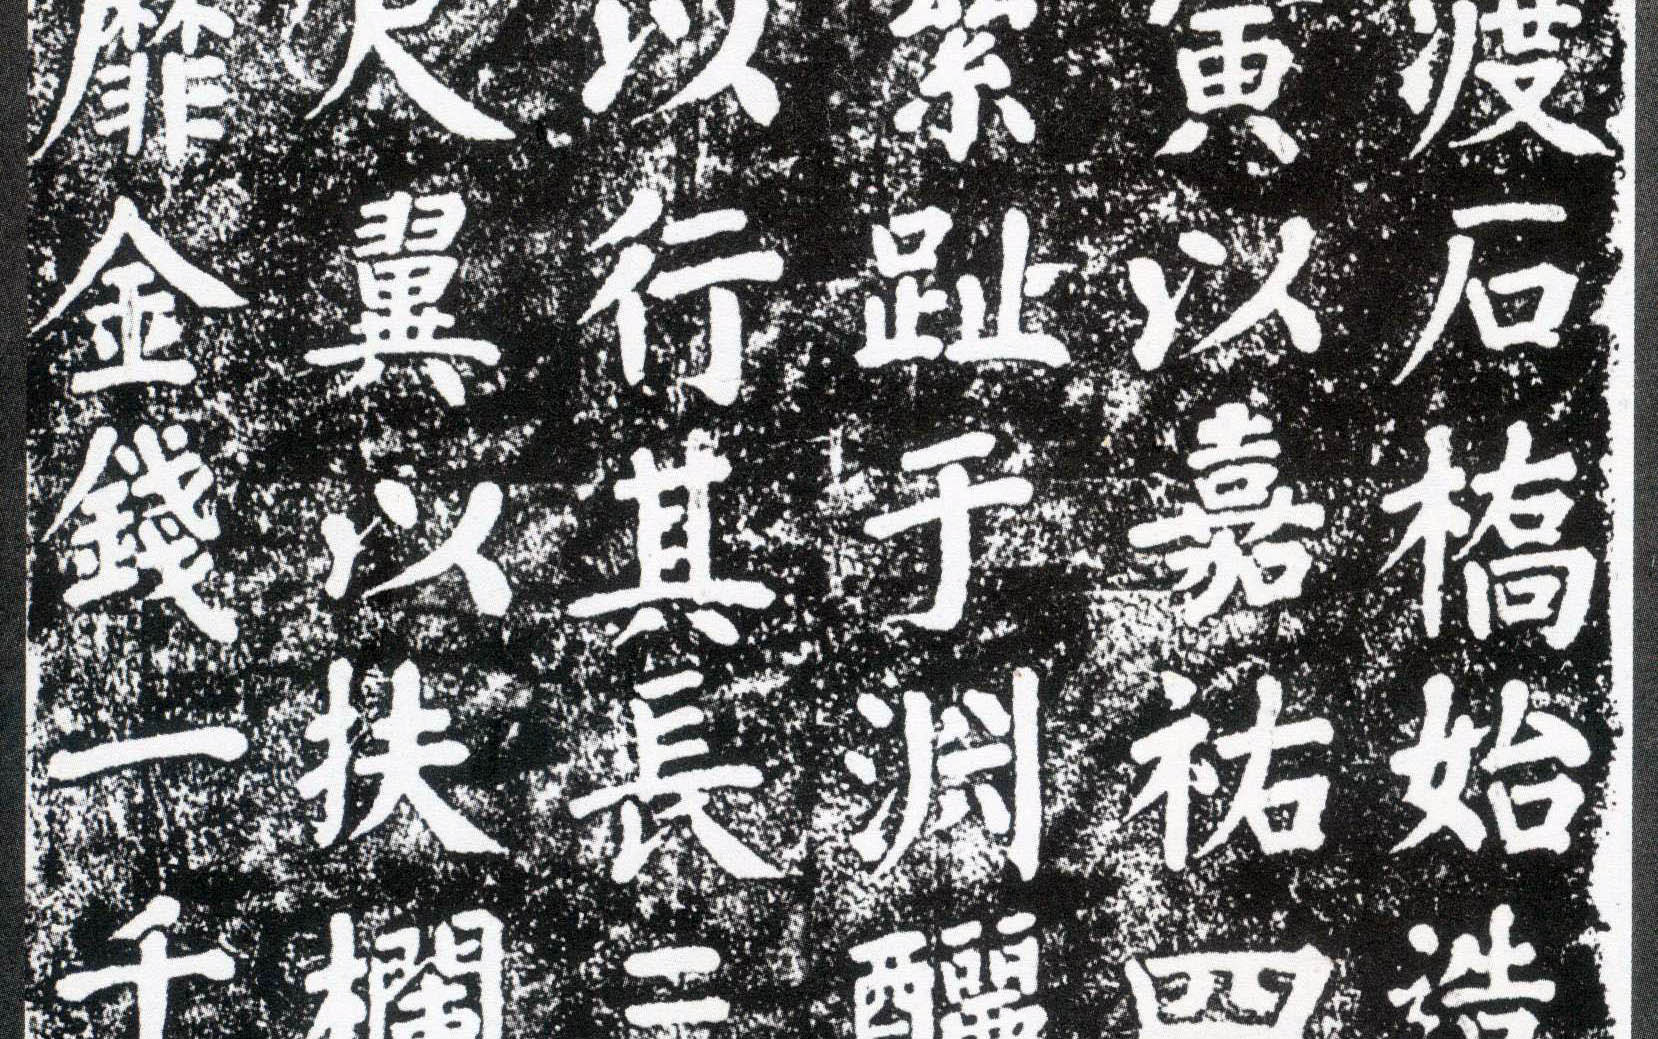 渡石橋始造
寅以嘉祐四
絫趾于淵釃
以行其長三
尺翼以扶欄
靡金錢一千